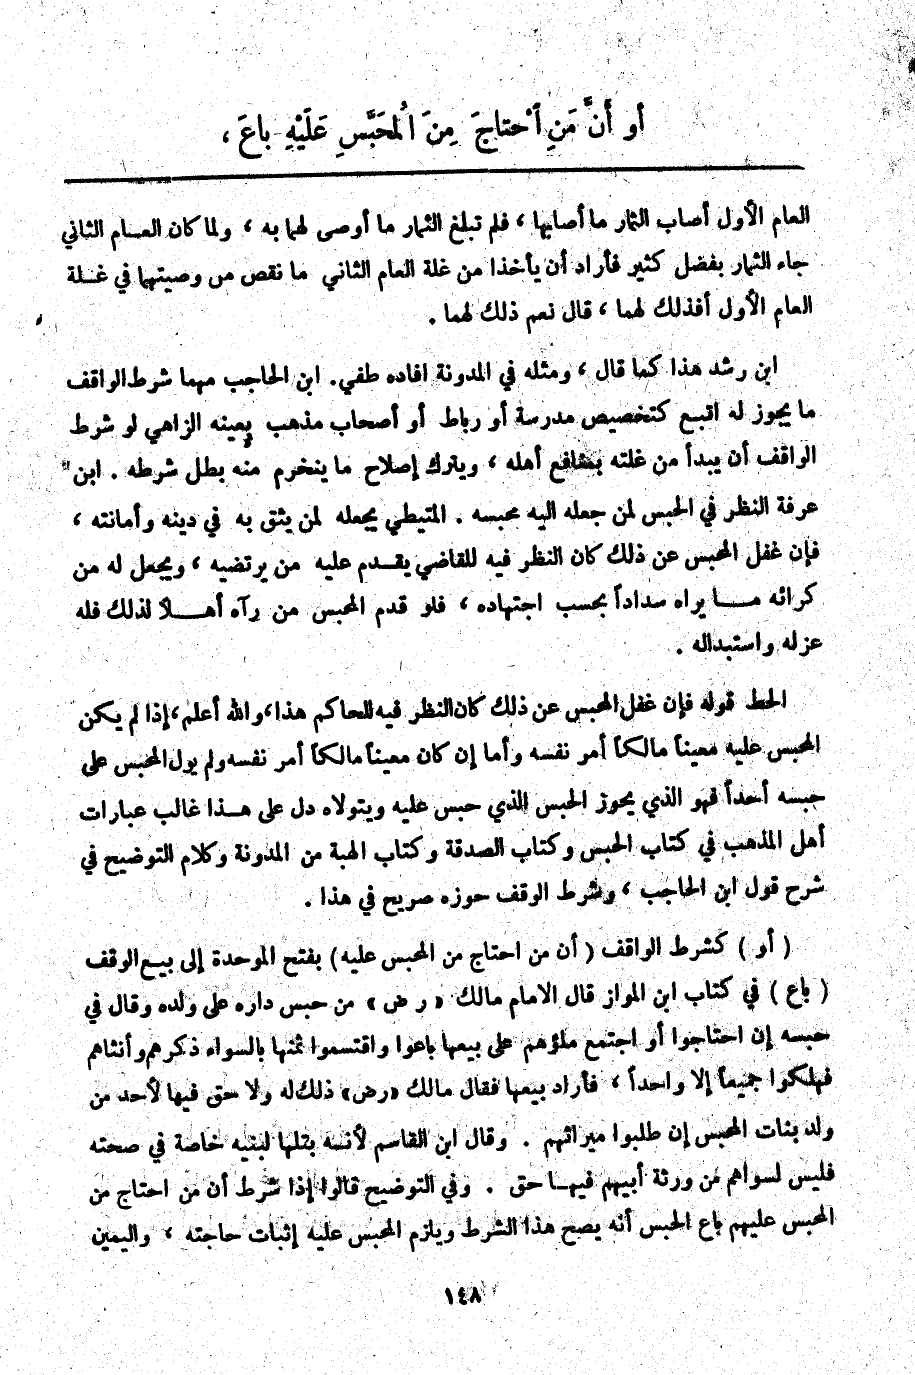 أو أَنَّ مَنِ ٱحْتاجَ مِنَ ٱلْمُحَبَّسِ عَلَيْهِ باعَ ،
العام الأول أصاب الثمار ما أصابها ، فلم تبلغ الثمار ما أوصى لهما به ، ولما كان العــام الثاني
جاء الثمار بفضل كثير فأراد أن يأخذا من غلة العام الثاني ما نقص من وصيتهما في غــلة
العام الأول أفذلك لهما ، قال نعم ذلك لهما .
ابن رشد هذا كما قال ، ومثله في المدونة افاده طفي . ابن الحاجب مهما شرط الواقف
ما يجوز له اتبــع كتخصيص مدرسة أو رباط أو أصحاب مذهب بعينه الزاهي لو شرط
الواقف أن يبدأ من غلته بمنافع أهله ، ويترك إصلاح ما ينخرم منه بطل شرطه . ابن
عرفة النظر في الحبس لمن جعله اليه محبسه . المتيطي يجعله لمن يثق به في دينه وأمانته ،
فإن غفل المحبس عن ذلك كان النظر فيه للقاضي يقــدم عليه من يرتضيه ، ويجعل له من
كرائه مــــا يراه سداداً بحسب اجتهاده ، فلو قدم المحبس من رآه أهــــلاً لذلك فله
عزله واستبداله .
الحط قوله فإن غفل المحبس عن ذلك كان النظر فيه للحاكم هذا ، والله أعلم ، إذا لم يكن
المحبس عليه معيناً مالكاً أمر نفسه وأما إن كان معيناً مالكاً أمر نفسه ولم يول المحبس على
حبسه أحداً فهو الذي يحوز الحبس الذي حبس عليه ويتولاه دل على هــذا غالب عبارات
أهل المذهب في كتاب الحبس وكتاب الصدقة وكتاب الهبة من المدونة وكلام التوضيح في
شرح قول ابن الحاجب ، وشرط الوقف حوزه صريح في هذا .
( أو ) كشرط الواقف ( أن من احتاج من المحبس عليه ) بفتح الموحدة إلى بيــع الوقف
( باع ) في كتاب ابن المواز قال الامام مالك « ر ض » من حبس داره على ولده وقال في
حبسه إن احتاجوا أو اجتمع ملؤهم على بيعها باعوا واقتسموا ثمنها بالسواء ذكرهم وأنثاهم
فهلكوا جميعاً إلا واحداً ، فأراد بيعها فقال مالك «رض» ذلك له ولا حق فيها لأحد من
ولد بنات المحبس إن طلبوا ميراثهم . وقال ابن القاسم لأنــه بتلها لبنيه خاصة في صحته
فليس لسواهم من ورثة أبيهم فيهــا حق . وفي التوضيح قالوا إذا شرط أن من احتاج من
المحبس عليهم باع الحبس أنه يصح هذا الشرط ويلزم المحبس عليه إثبات حاجته ، واليمين
١٤٨